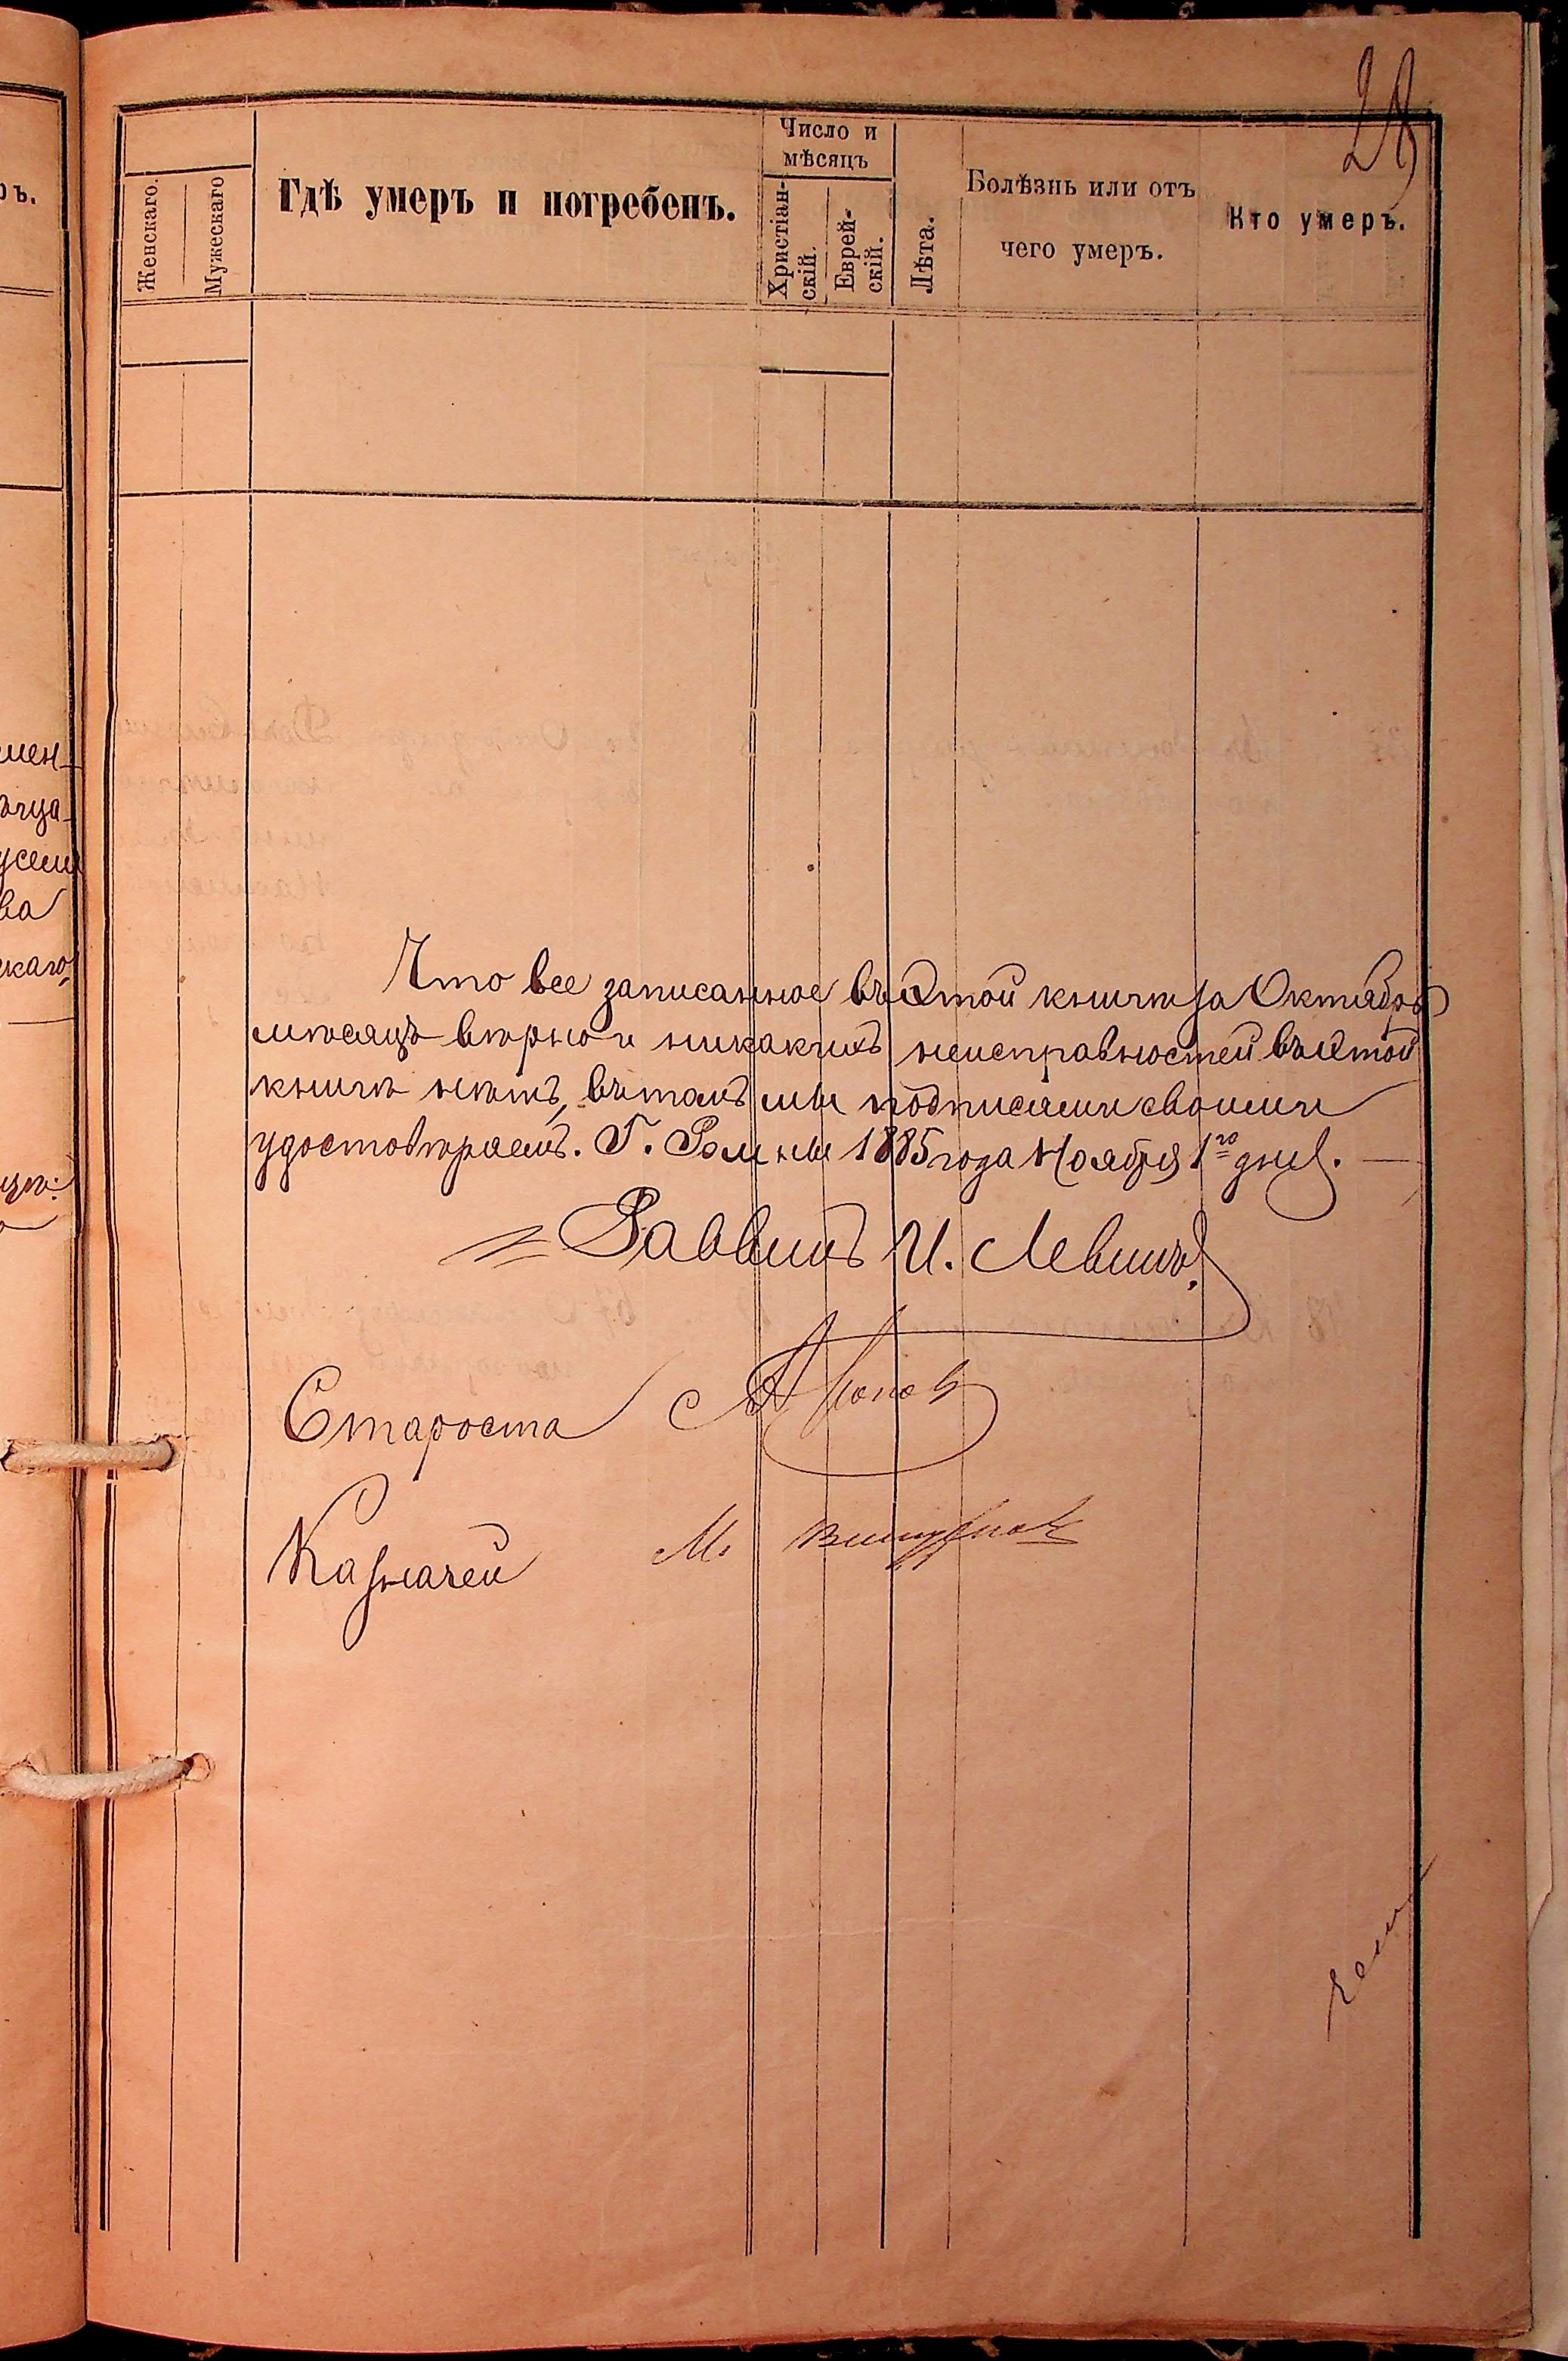 28
Женскаго.
Мужескаго
Гдѣ умеръ и погребенъ.
Число и
мѣсяцъ
Христіан-
скій.
Еврей-
скій.
Лѣта.
Болѣзнь или отъ
чего умеръ.
Кто умеръ.
Что все записанное въ этой книгѣ за Октябрь
мѣсяцъ вѣрно и никакихъ неисправностей въ этой
книгѣ нѣтъ, въ томъ мы подписами своими
удостовѣряемъ. Г. Ромны 1885 года Ноября 1го дня. —
Раввинъ И. Левинъ.
Староста
Казначей М.
ръ.
мен-
ва
скаго,